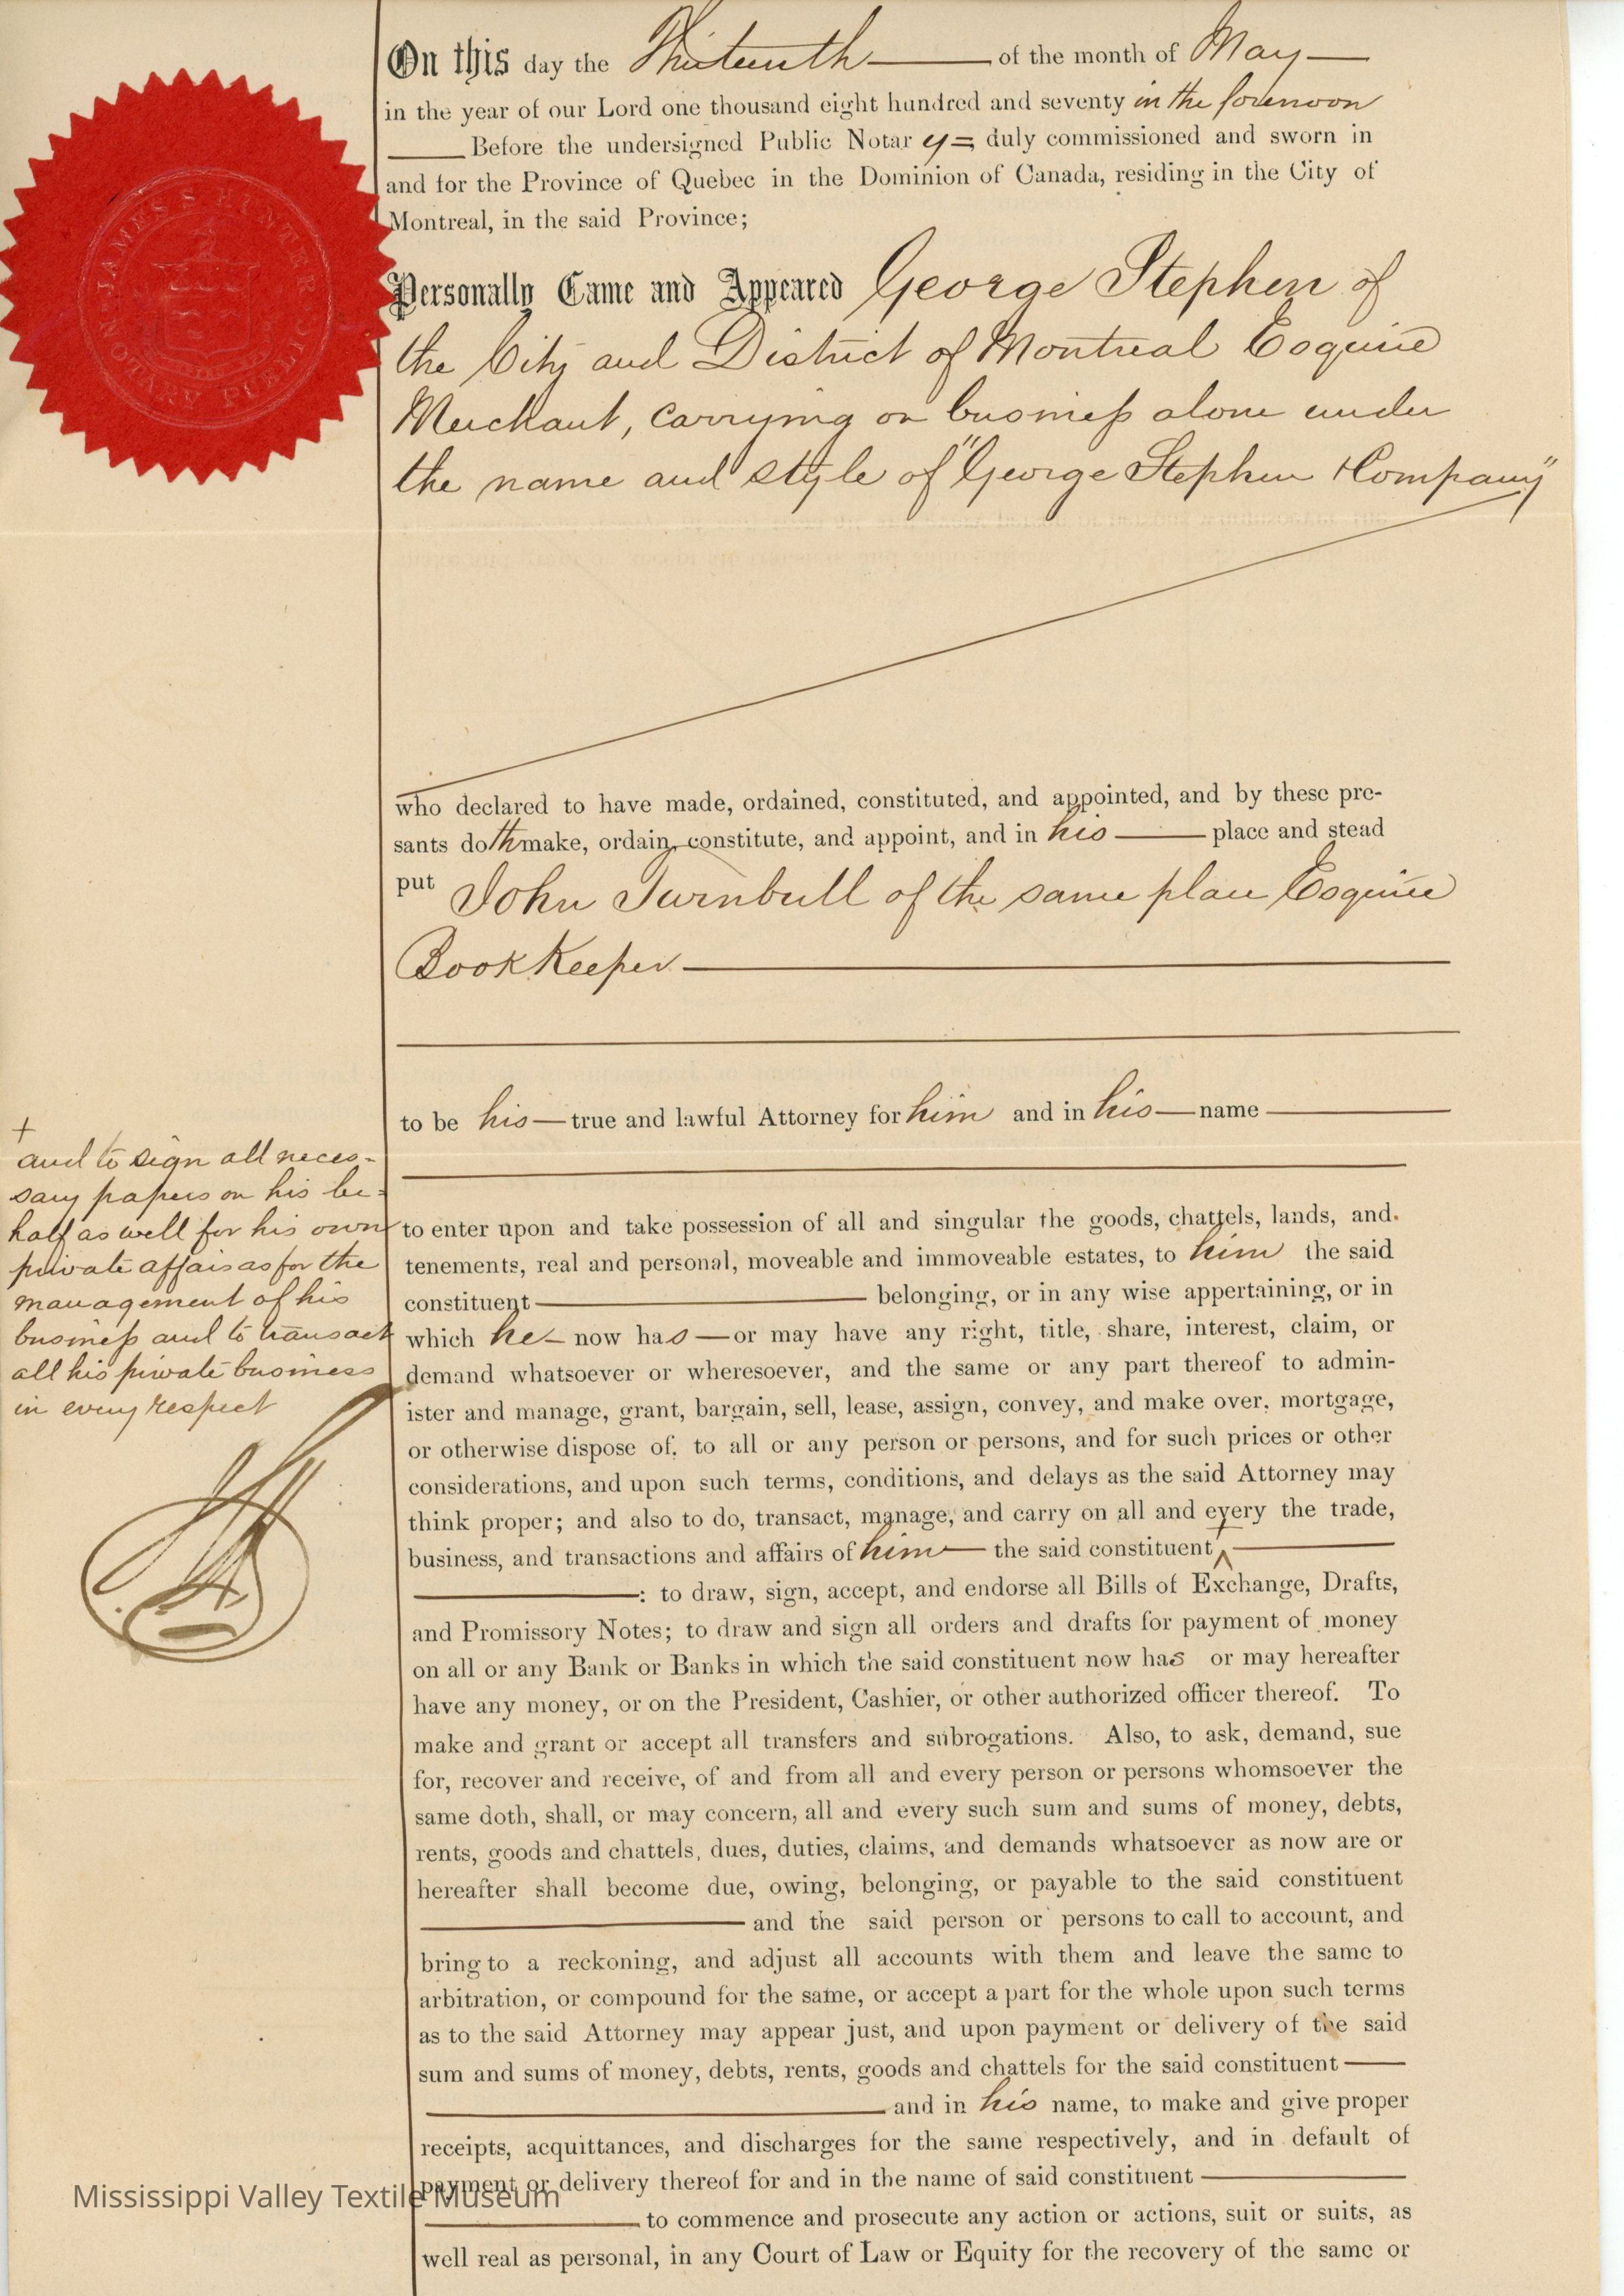 On this day the Thirteenth of the month of May
in the year of our Lord one thousand eight hundred and seventy in the forenoon
Before the undersigned Public Notar y duly commissioned and sworn in
and for the Province of Quebec in the Dominion of Canada, residing in the City of
Montreal, in the said Province;
JAMES S HUNTER
NOTARY PUBLIC
Personally Came and Appeared George Stephen of
the City and District of Montreal Esquire
Merchant, carrying on business alone under
the name and style of "George Stephen & Company"
who declared to have made, ordained, constituted, and appointed, and by these pre-
sants doth make, ordain, constitute, and appoint, and in his place and stead
put John Turnbull of the same place Esquire
Book Keeper
to be his true and lawful Attorney for him and in his name
+
and to sign all neces-
sary papers on his be-
half as well for his own
private affairs as for the
management of his
business and to transact
all his private business
in every respect
to enter upon and take possession of all and singular the goods, chattels, lands, and
tenements, real and personal, moveable and immoveable estates, to him the said
constituent belonging, or in any wise appertaining, or in
which he now has or may have any right, title, share, interest, claim, or
demand whatsoever or wheresoever, and the same or any part thereof to admin-
ister and manage, grant, bargain, sell, lease, assign, convey, and make over, mortgage,
or otherwise dispose of, to all or any person or persons, and for such prices or other
considerations, and upon such terms, conditions, and delays as the said Attorney may
think proper; and also to do, transact, manage, and carry on all and every the trade,
business, and transactions and affairs of him the said constituent,
: to draw, sign, accept, and endorse all Bills of Exchange, Drafts,
and Promissory Notes; to draw and sign all orders and drafts for payment of money
on all or any Bank or Banks in which the said constituent now has or may hereafter
have any money, or on the President, Cashier, or other authorized officer thereof. To
make and grant or accept all transfers and subrogations. Also, to ask, demand, sue
for, recover and receive, of and from all and every person or persons whomsoever the
same doth, shall, or may concern, all and every such sum and sums of money, debts,
rents, goods and chattels, dues, duties, claims, and demands whatsoever as now are or
hereafter shall become due, owing, belonging, or payable to the said constituent
and the said person or persons to call to account, and
bring to a reckoning, and adjust all accounts with them and leave the same to
arbitration, or compound for the same, or accept a part for the whole upon such terms
as to the said Attorney may appear just, and upon payment or delivery of the said
sum and sums of money, debts, rents, goods and chattels for the said constituent
and in his name, to make and give proper
receipts, acquittances, and discharges for the same respectively, and in default of
payment or delivery thereof for and in the name of said constituent
Mississippi Valley Textile Museum
to commence and prosecute any action or actions, suit or suits, as
well real as personal, in any Court of Law or Equity for the recovery of the same or